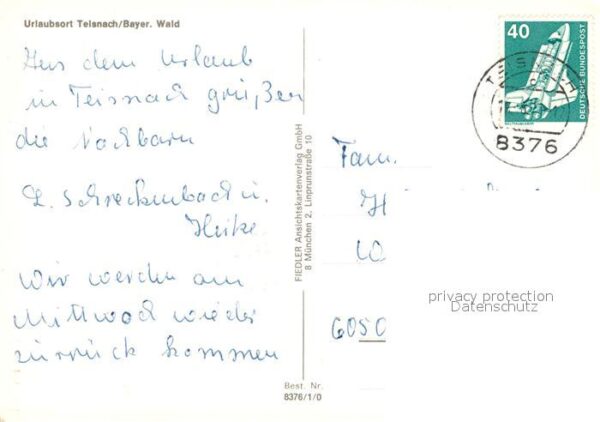 Urlaubsort Teisnach/Bayer. Wald
Aus dem Urlaub
in Teisnach grüßen
die Nachbarn
L. Schreckenbach u.
Heike
Wir werden am
Mittwoch wieder
zurück kommen
FIEDLER Ansichtskartenverlag GmbH
8 München 2, Linprunstraße 10
Best. Nr.
8376/1/0
40
DEUTSCHE BUNDESPOST
8376
Fam.
H
6050
privacy protection
Datenschutz